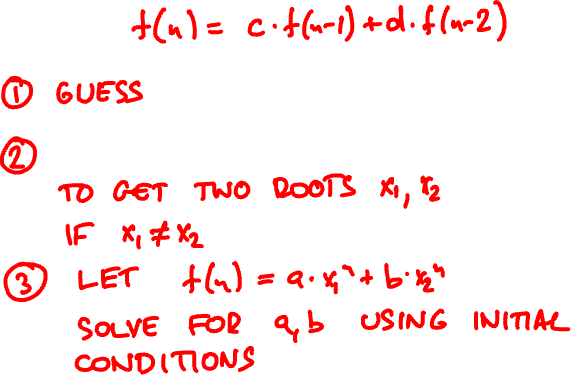 f(n) = c·f(n-1) + d·f(n-2)
① GUESS
②
TO GET TWO ROOTS x₁, x₂
IF x₁ ≠ x₂
③ LET f(n) = a·x₁ⁿ + b·x₂ⁿ
SOLVE FOR a, b USING INITIAL
CONDITIONS